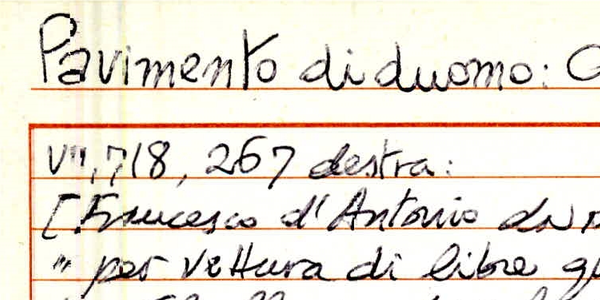 Pavimento di duomo:
V'', 718, 267 destra:
[Francesco d'Antonio da
" per vettura di libre